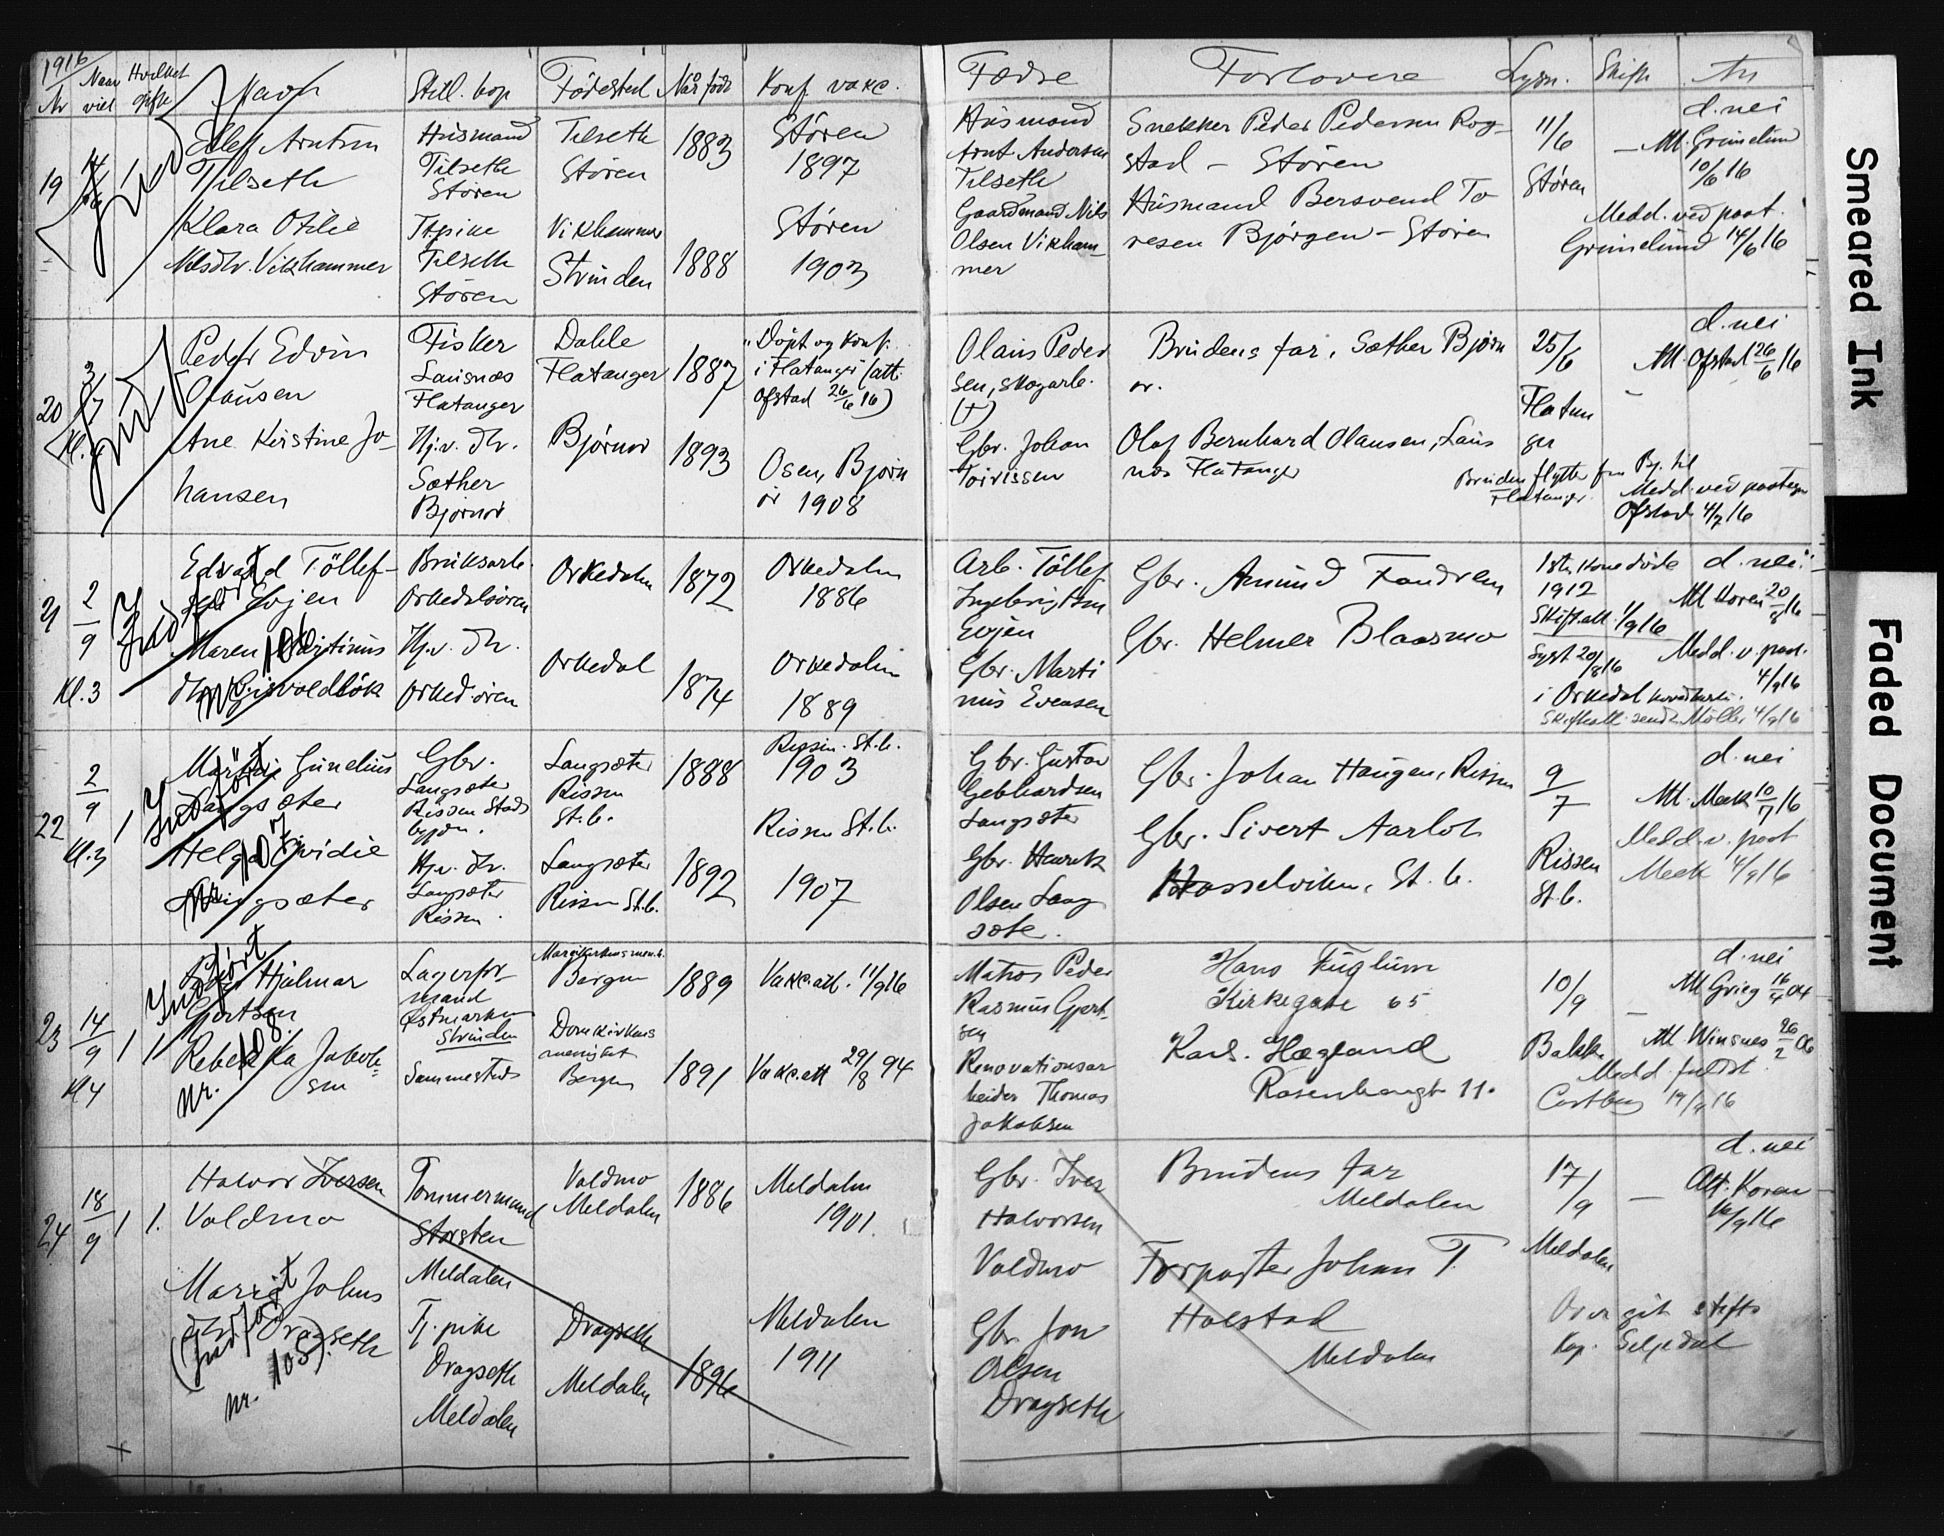 1916
Nr
Naar viet
Hvilket gifte
Navn
Still. bop
Fødested
Når født
Konf. vakc.
Fædre
Forlovere
Lysn.
Skifte
An
19
Ellef Arntsen
Tilseth
Husmand
Tilseth
Støren
Tilseth
Støren
1883
Støren
1897
Husmand
Arnt Andersen
Tilseth
Snekker Peder Pedersen Rog-
stad - Støren
11/6
Støren
d. nei
Att. Grünelund
10/6 16
Klara Otilie
Nilsdtr. Vikhammer
Tjpike
Tilseth
Støren
Vikhammer
Strinden
1888
Støren
1903
Gaardmand Nils
Olsen Vikham-
mer
Husmand Bersvend To
resen Bjørgen - Støren
Medd. ved post.
Grünelund 14/6 16
20
3/7
Peder Edvin
Olausen
Fisker
Lausnæs
Flatanger
Dahle
Flatanger
1887
"Døpt og konf.
i Flatanger (att.
Ofstad 26/6 16)
Olaus Peder
sen, skogarb.
(†)
Brudens far, Sæther Bjørn
or.
25/6
Flatan
ger
d. nei
Att. Ofstad 26/6 16
Ane Kirstine Jo-
hansen
Hj.v. dtr.
Sæther
Bjørnør
Bjørnør
1893
Osen, Bjørn
ør 1908
Gbr. Johan
Toirissen
Olaf Bernhard Olausen, Laus
næs Flatanger
Bruden flytter fra Bj. til
Flatanger.
Medd. ved postegn
Ofstad 4/7 16
21
2/9
Kl. 3
Indført
nr. 106
Edvard Töllef-
sen Evjen
Bruksarb.
Orkedalsøren
Orkedalen
1872
Orkedalen
1886
Arb. Töllef
Ingebrigtsen
Evjen
Gbr. Amund Fandrem
1ste kone døde
1912
Skift.att. 1/9 16
d. nei
Att Koren 20/8 16
Maren Martinus
dtr. Gjsvoldløk
Hj.v. dtr.
Orked.øren
Orkedal
1874
Orkedalen
1889
Gbr. Marti
nus Evensen
Gbr. Helmer Blaasmo
Lyst 20/8 16
i Orkedal hovedkirke.
Medd. v. post.
4/9 16
Skifteatt. sendt Möller 4/9 16
22
2/9
Kl. 3
1
Indført
nr. 107
Gunelius
Langsæter
Gbr.
Langsæter
Rissen Stads
bygden.
Langsæter
Rissen
St.b.
1888
Rissen. St.b.
1903
Gbr. Gustav
Gebhardsen
Langsæter
Gbr. Johan Haugen, Rissen
9/7
Rissen
St.b.
d. nei
Att. Meek 10/7 16
Helga Ovidie
Langsæter
Hj.v. dtr.
Langsæter
Rissen.
Langsæter
Rissen St.b.
1892
Rissen St.b.
1907
Gbr. Henrik
Olsen Lang
sæte.
Gbr. Sivert Aarlot
Hasselviken, St. b.
Medd. v. post
Meek 4/9 16
23
14/9
Kl 4
1
1
Indført
nr. 108.
Peder Hjalmar
Gjertsen
Lagerfor
mand
Østmarken
Strinden
Mariækirkens men.h.
Bergen
1889
Vakc.att. 11/9 16
Matros Peder
Rasmus Gjert-
sen
Hans Fuglum
Kirkegate 65
10/9
Bakke
d. nei
Att. Grieg 16/4 04
Rebekka Jakob-
sen
Sammesteds
Domkirkens
menighet
Bergen
1891
Vakc.att 29/8 94
Renovationsar
beider Thomas
Jakobsen
Karl. Hægland
Rosenborggt 11.
Att. Winsnes 26/2 06
Medd.
Castberg 19/9 16
24
18/9
1
1.
Halvor Iversen
Voldmo
Tømmermand
Storsten
Meldalen
Voldmo
Meldalen
1886
Meldalen
1901.
Gbr. Iver
Halvorsen
Voldmo
Brudens far
Meldalen
17/9
Meldalen
d. nei
Att. Koren
16/9 16
Marrit Johns
dtr. Dragseth
(Indført
nr. 105).
Tj. pike
Dragseth
Meldalen
Dragseth
Meldalen
1896
Meldalen
1911
Gbr. Jon
Olsen
Dragseth
Forpagter Johan T.
Halstad
Meldalen
Over git stifts
Kap. Seljedal
Smeared Ink
Faded Document